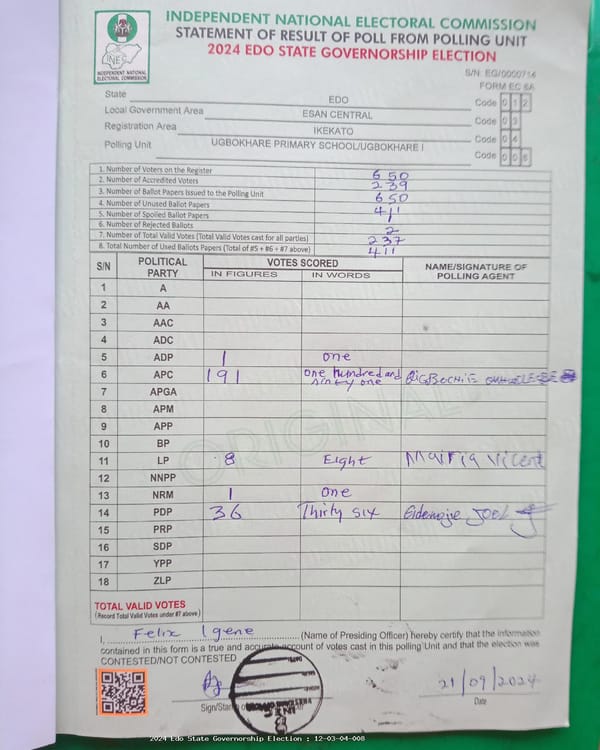 INDEPENDENT NATIONAL ELECTORAL COMMISSION
STATEMENT OF RESULT OF POLL FROM POLLING UNIT
2024 EDO STATE GOVERNORSHIP ELECTION
INEC
INDEPENDENT NATIONAL ELECTORAL COMMISSION
S/N: EG/0000714
FORM EC 8A
State EDO Code 0 1 2
Local Government Area ESAN CENTRAL Code 0 3
Registration Area IKEKATO Code 0 4
Polling Unit UGBOKHARE PRIMARY SCHOOL/UGBOKHARE I Code 0 0 8
1. Number of Voters on the Register 650
2. Number of Accredited Voters 239
3. Number of Ballot Papers Issued to the Polling Unit 650
4. Number of Unused Ballot Papers 411
5. Number of Spoiled Ballot Papers
6. Number of Rejected Ballots 2
7. Number of Total Valid Votes (Total Valid Votes cast for all parties) 237
8. Total Number of Used Ballots Papers (Total of #5 + #6 + #7 above) 411
S/N POLITICAL PARTY VOTES SCORED NAME/SIGNATURE OF POLLING AGENT
IN FIGURES IN WORDS
1 A
2 AA
3 AAC
4 ADC
5 ADP 1 one
6 APC 191 one hundred and ninty one
7 APGA
8 APM
9 APP
10 BP
11 LP 8 Eight
12 NNPP
13 NRM 1 one
14 PDP 36 Thirty six JOEL
15 PRP
16 SDP
17 YPP
18 ZLP
ORIGINAL
TOTAL VALID VOTES
(Record Total Valid Votes under #7 above)
I, Felix Igene (Name of Presiding Officer) hereby certify that the information
contained in this form is a true and accurate account of votes cast in this polling Unit and that the election was
CONTESTED/NOT CONTESTED
21/09/2024
Sign/Stamp Date
2024 Edo State Governorship Election : 12-03-04-008